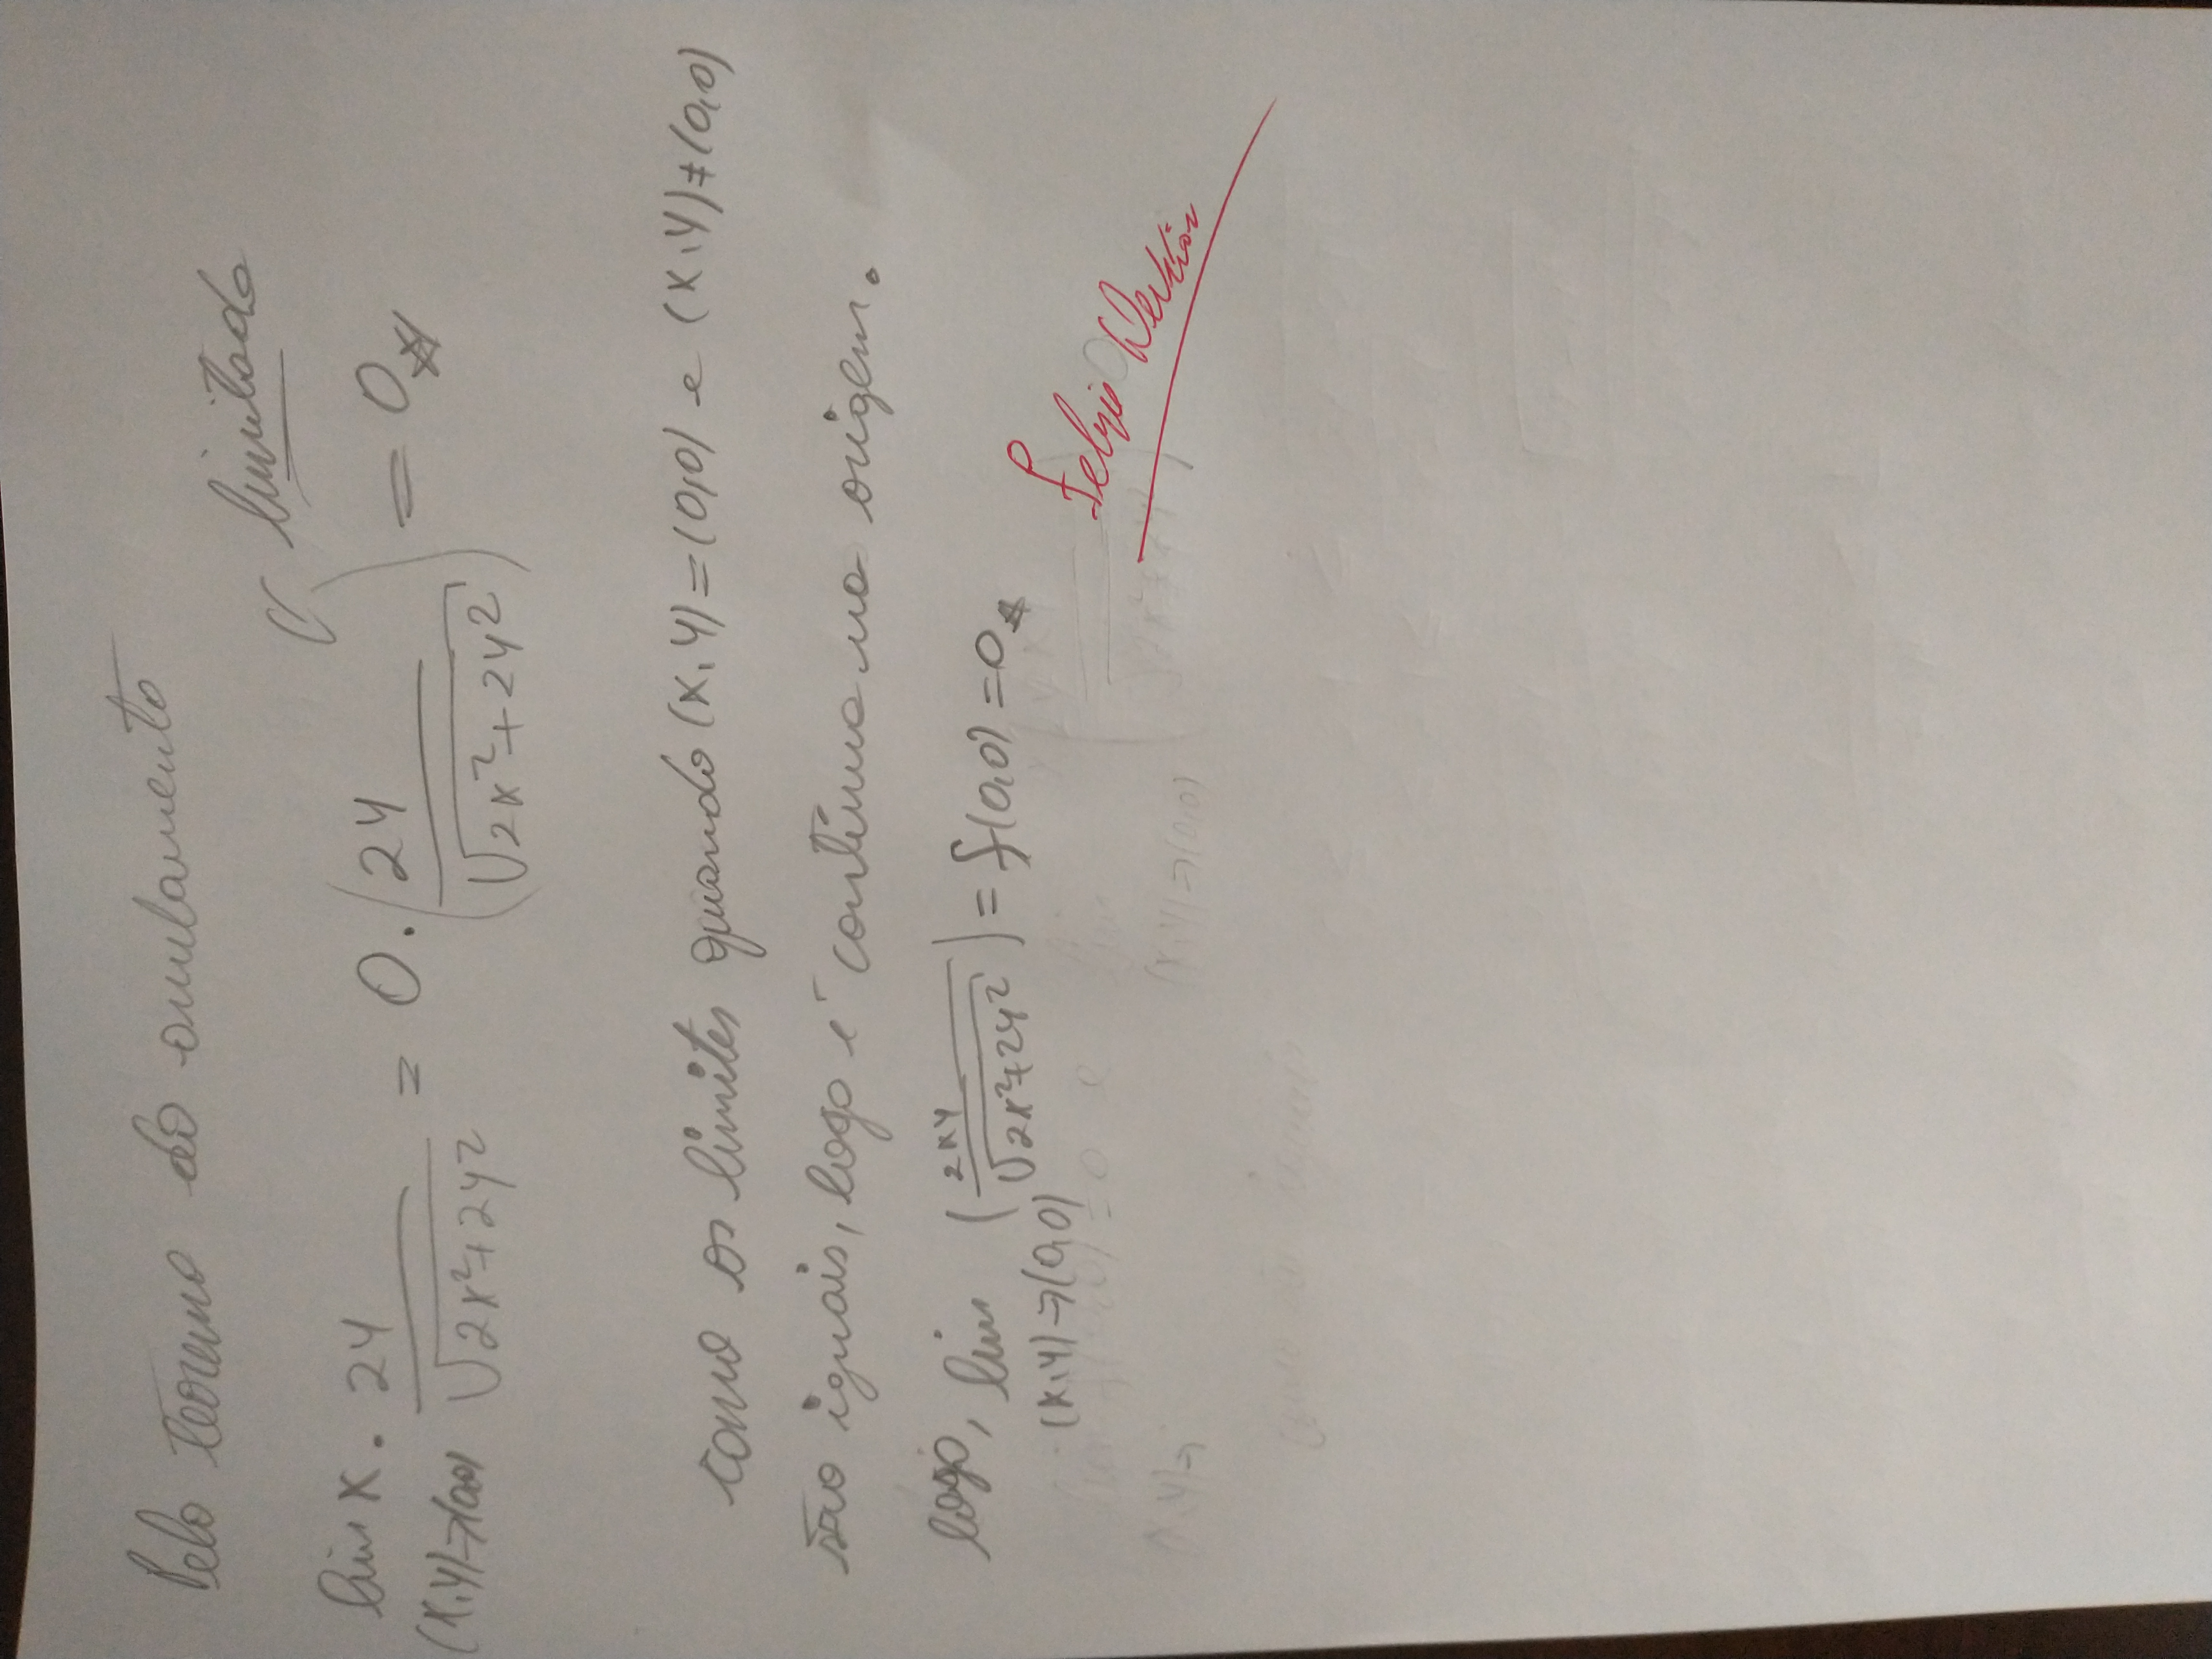 Pelo teorema do anulamento
limitada
lim x . 2y / √2x²+2y² = 0 . ( 2y / √2x²+2y² ) = 0
(x,y)→(0,0)
como os limites quando (x,y)=(0,0) e (x,y)≠(0,0)
são iguais, logo é contínua na origem.
logo, lim ( 2xy / √2x²+2y² ) = f(0,0) = 0
(x,y)→(0,0)
(x,y)→ (x,y)→(0,0)